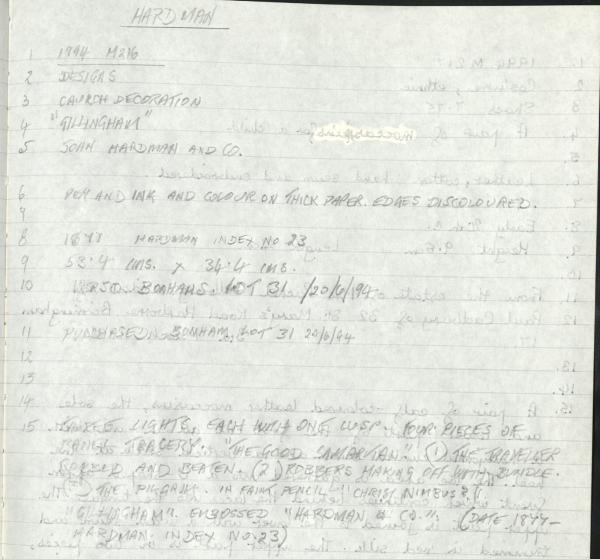 HARDMAN
1 1994 M216
2 DESIGNS
3 CHURCH DECORATION
4 "GILLINGHAM"
5 JOHN HARDMAN AND CO.
6 PEN AND INK AND COLOUR ON THICK PAPER. EDGES DISCOLOURED.
7
8 1877 HARDMAN INDEX NO 23
9 53.4 CMS. X 34.4 CMS.
10 VERSO. BONHAMS. LOT 31 /20/6/94
11 PURCHASED BONHAM, LOT 31 20/6/94
12
13
14
15 THREE LIGHTS, EACH WITH ONE CUSP. FOUR PIECES OF
TRACERY. "THE GOOD SAMARITAN. (1) THE TRAVELLER
ROBBED AND BEATEN. (2) ROBBERS MAKING OFF WITH BUNDLE.
(3) THE PILGRIM. IN FAINT PENCIL "CHRIST NIMBUS?"
"GILLINGHAM". EMBOSSED "HARDMAN & CO.". (DATE 1877-
HARDMAN INDEX NO. 23)